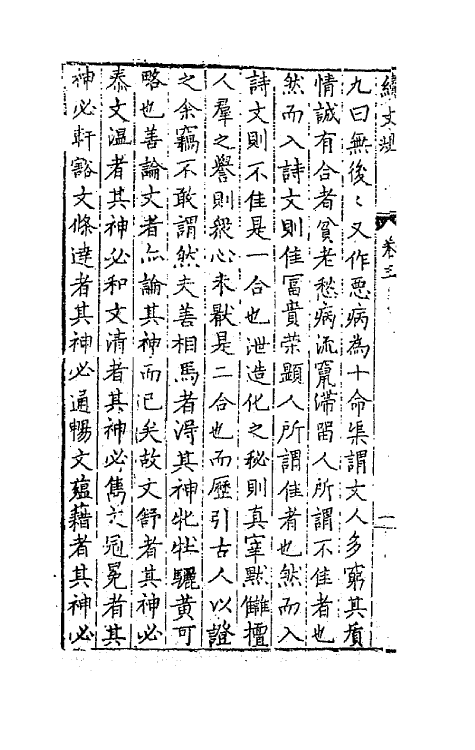 續文規 卷三 一
九曰無後〻又作惡病為十命渠謂文人多窮其質
情誠有合者貧老愁病流竄滯留人所謂不佳者也
然而入詩文則佳富貴荣顯人所謂佳者也然而入
詩文則不佳是一合也泄造化之秘則真宰默讎擅
人羣之譽則衆心未厭是二合也而歷引古人以證
之余竊不敢謂然夫善相馬者淂其神牝牡驪黄可
略也善論文者亦論其神而已矣故文舒者其神必
泰文温者其神必和文清者其神必雋文冠冕者其
神必軒豁文條達者其神必通暢文蕴藉者其神必